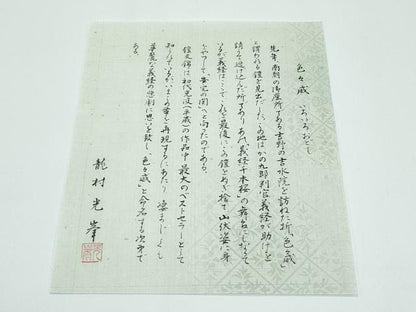 色々威 いろいろおどし
先年、南朝の御座所である吉野の吉水院を訪ねた折、「色々威」
と謂われる鎧を見出だした。この地はかの九郎判官義経が助けを
請うて逃げ込んだ所であり、あの「義経千本桜」の舞台にもなって
いるが義経はここでこれを最後にこの鎧をぬぎ捨て、山伏姿に身
をやつして、安宅の関へと向ったのである。
鎧文錦は初代光波(平蔵)の作品中最大のベストセラーとして
知られているがいまこの華を再現するにあたり
華麗な義経の悲劇に思いを致し「色々威」と命名する次第で
ある。
龍村光峯